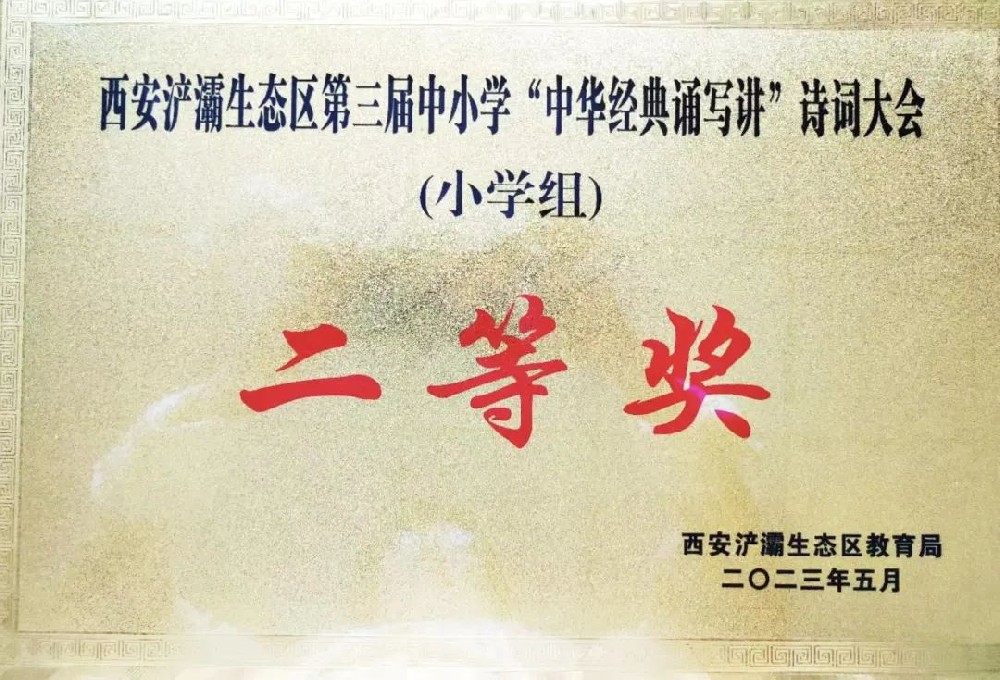 西安浐灞生态区第三届中小学“中华经典诵写讲”诗词大会
(小学组)
二等奖
西安浐灞生态区教育局
二〇二三年五月